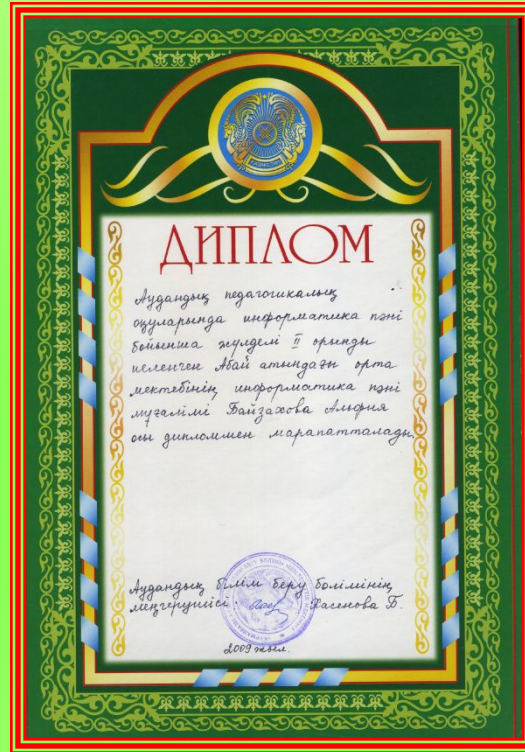 ҚАЗАҚСТАН
ДИПЛОМ
Аудандық педагогикалық
оқуларында информатика пәні
бойынша жүлделі II орынды
иеленген Абай атындағы орта
мектебінің информатика пәні
мұғалімі Байзахова Альфия
осы дипломмен марапатталады.
Аудандық білім беру бөлімінің
меңгерушісі: Хасенова Б.
2009 жыл.